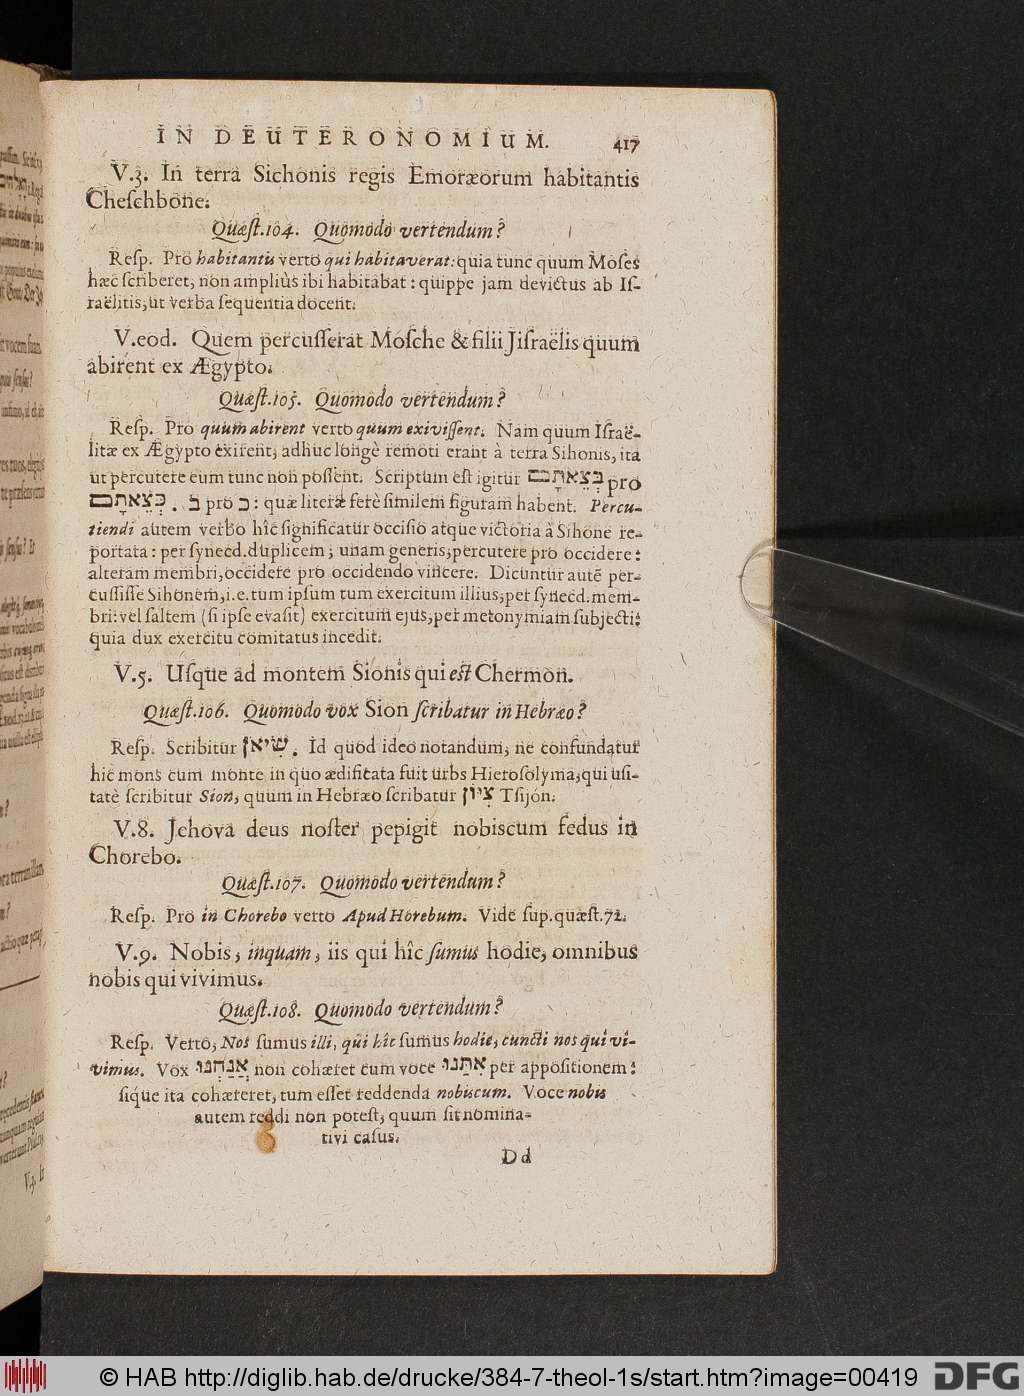 IN DEUTERONOMIUM. 417
V.3. In terra Sichonis regis Emoræorum habitantis
Cheſchbone.
Quæſt.104. Quomodo vertendum?
Reſp. Pro habitantis verto qui habitaverat: quia tunc quum Moſes
hæc ſcriberet, non ampliùs ibi habitabat: quippe jam devictus ab Iſ-
raëlitis, ut verba ſequentia docent.
V.eod. Quem percuſſerat Moſche & filii Jiſraëlis quum
abirent ex Ægypto.
Quæſt.105. Quomodo vertendum?
Reſp. Pro quum abirent verto quum exiviſſent. Nam quum Iſraë-
litæ ex Ægypto exirent, adhuc longè remoti erant à terra Sihonis, ita
ut percutere eum tunc non poſſent. Scriptum eſt igitur בְּצֵאתָם pro
כְּצֵאתָם. ב pro כ: quæ literæ ferè ſimilem figuram habent. Percu-
tiendi autem verbo hîc ſignificatur occiſio atque victoria à Sihone re-
portata: per ſynecd.duplicem; unam generis, percutere pro occidere:
alteram membri, occidere pro occidendo vincere. Dicuntur autē per-
cuſſiſſe Sihonem, i.e. tum ipſum tum exercitum illius, per ſynecd.mem-
bri: vel ſaltem (ſi ipſe evaſit) exercitum ejus, per metonymiam ſubjecti:
quia dux exercitu comitatus incedit.
V.5. Uſque ad montem Sionis qui eſt Chermon.
Quæſt.106. Quomodo vox Sion ſcribatur in Hebræo?
Reſp. Scribitur שִׂיאֹן. Id quod ideo notandum, ne confundatur
hic mons cum monte in quo ædificata fuit urbs Hieroſolyma, qui uſi-
tatè ſcribitur Sion, quum in Hebræo ſcribatur צִיּוֹן Tſijón.
V.8. Jehova deus noſter pepigit nobiscum fedus in
Chorebo.
Quæſt.107. Quomodo vertendum?
Reſp. Pro in Chorebo verto Apud Horebum. Vide ſup.quæſt.72.
V.9. Nobis, inquam, iis qui hîc ſumus hodie, omnibus
nobis qui vivimus.
Quæſt.108. Quomodo vertendum?
Reſp. Verto, Nos ſumus illi, qui hîc ſumus hodie, cuncti nos qui vi-
vimus. Vox אֲנַחְנוּ non cohæret cum voce אִתָּנוּ per appoſitionem:
ſique ita cohæreret, tum eſſet reddenda nobiscum. Voce nobis
autem reddi non poteſt, quum ſit nomina-
tivi caſus.
Dd
© HAB http://diglib.hab.de/drucke/384-7-theol-1s/start.htm?image=00419
DFG